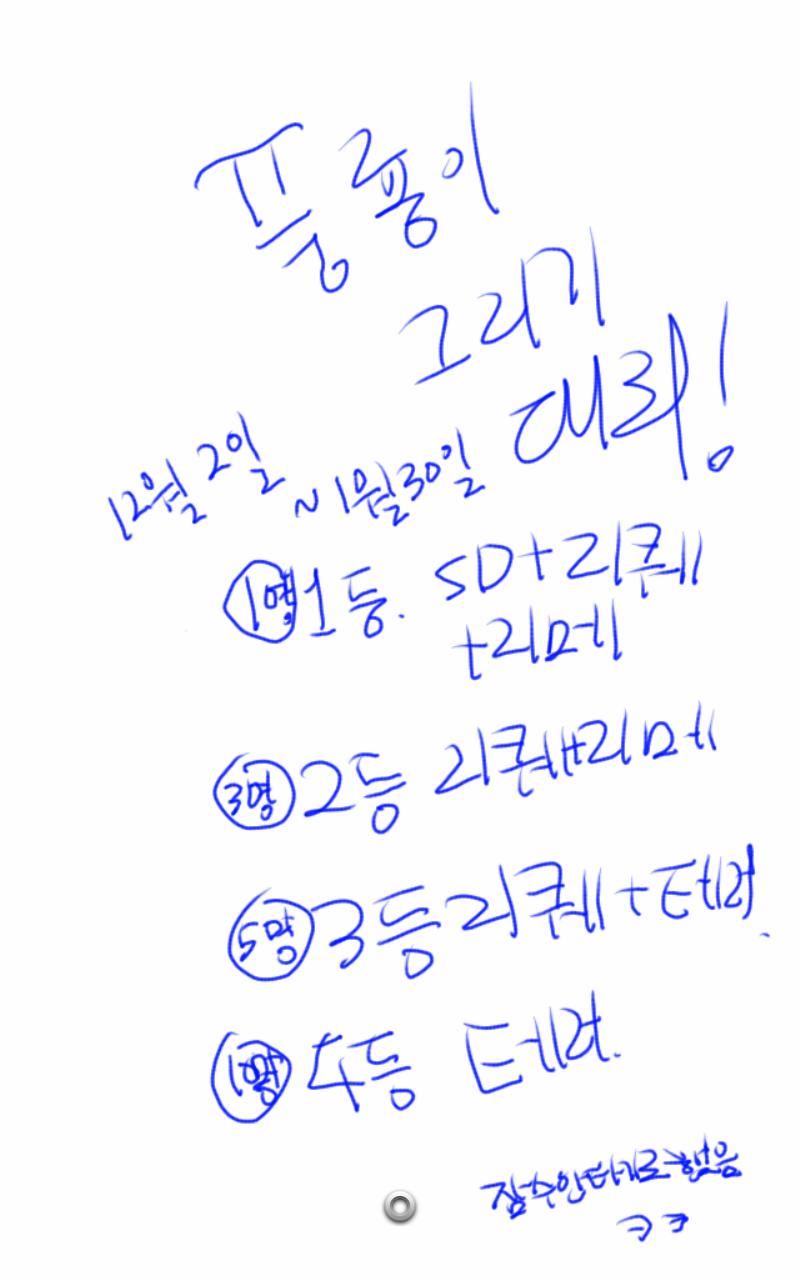 풍풍이
그리기
대회!
12월 2일
~1월30일
1명 1등. SD+리퀘
+리메
3명 2등 리퀘+리메
5명 3등 리퀘+테러.
4등 테러.
잠수안타기로했음
ㅋㅋ